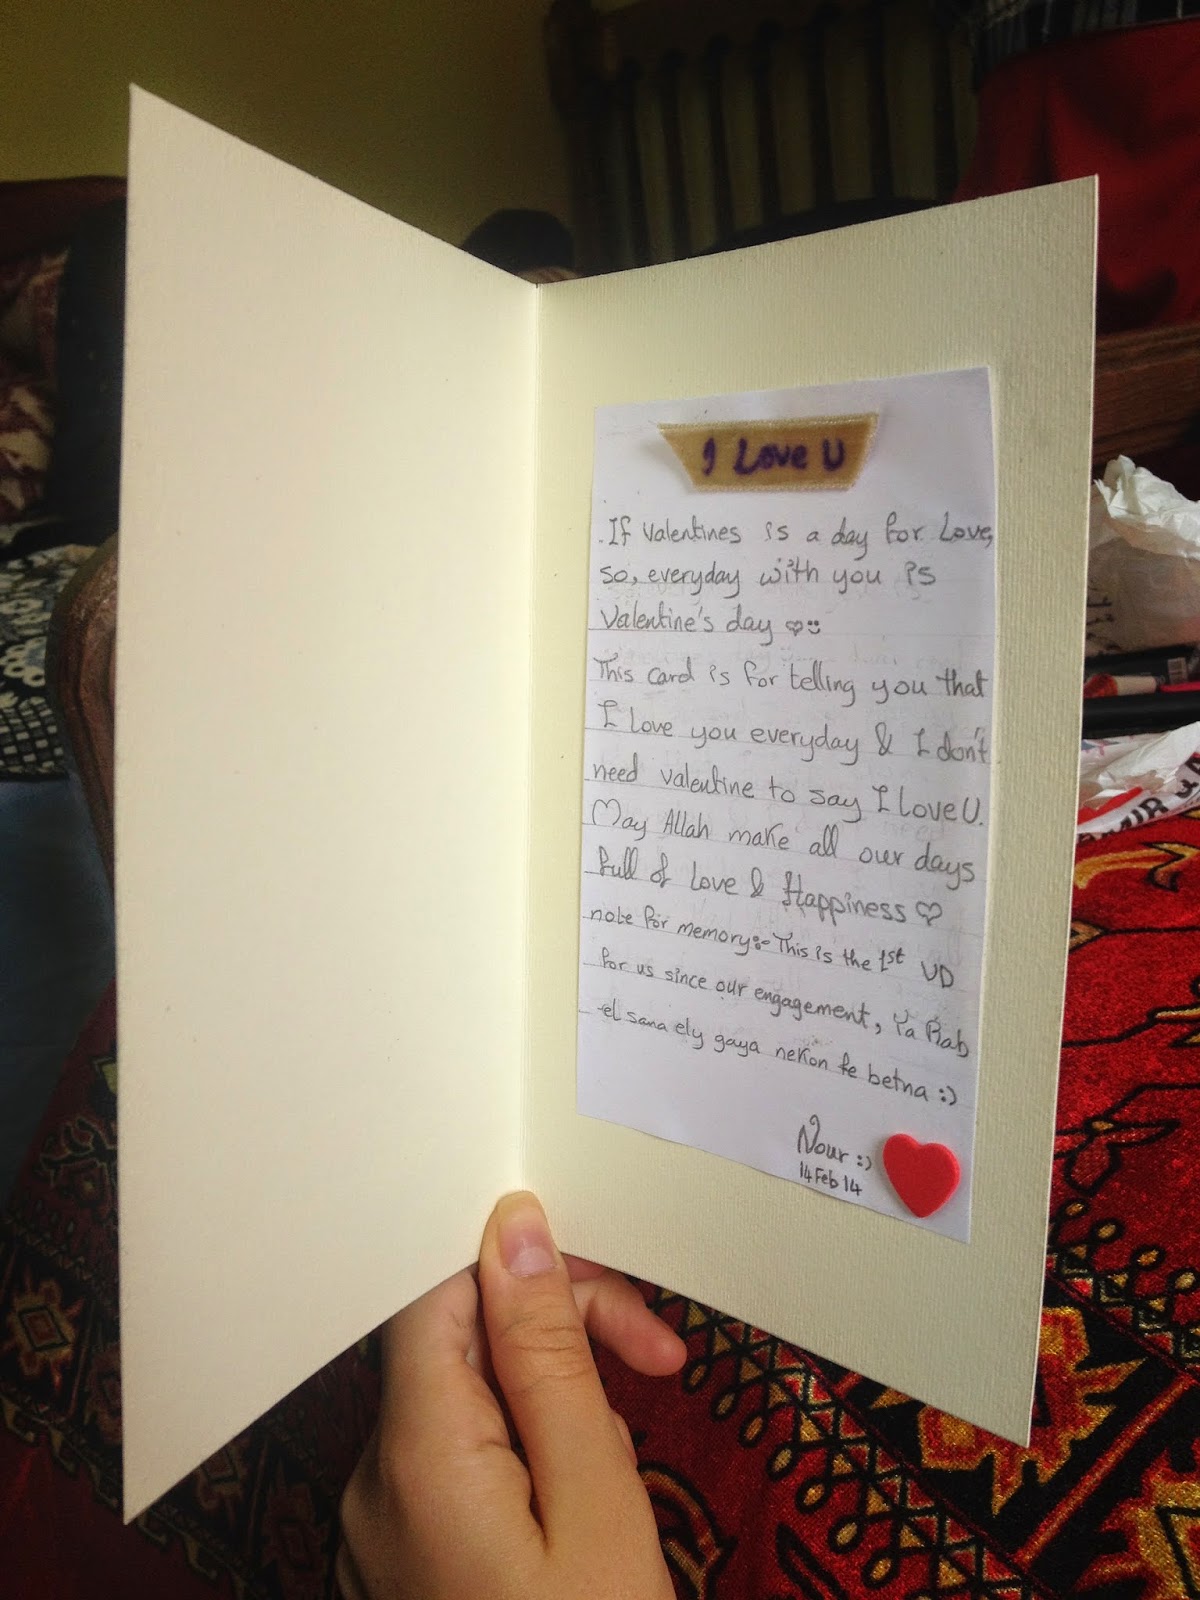 I Love U
If Valentines is a day for Love,
so, everyday with you is
Valentine's day ♡ :)
This card is for telling you that
I love you everyday & I don't
need valentine to say I love U.
May Allah make all our days
full of love & Happiness ♡
note for memory:- This is the 1st VD
for us since our engagement, Ya Rab
el sana ely gaya nekon fe betna :)
Nour :)
14 Feb 14